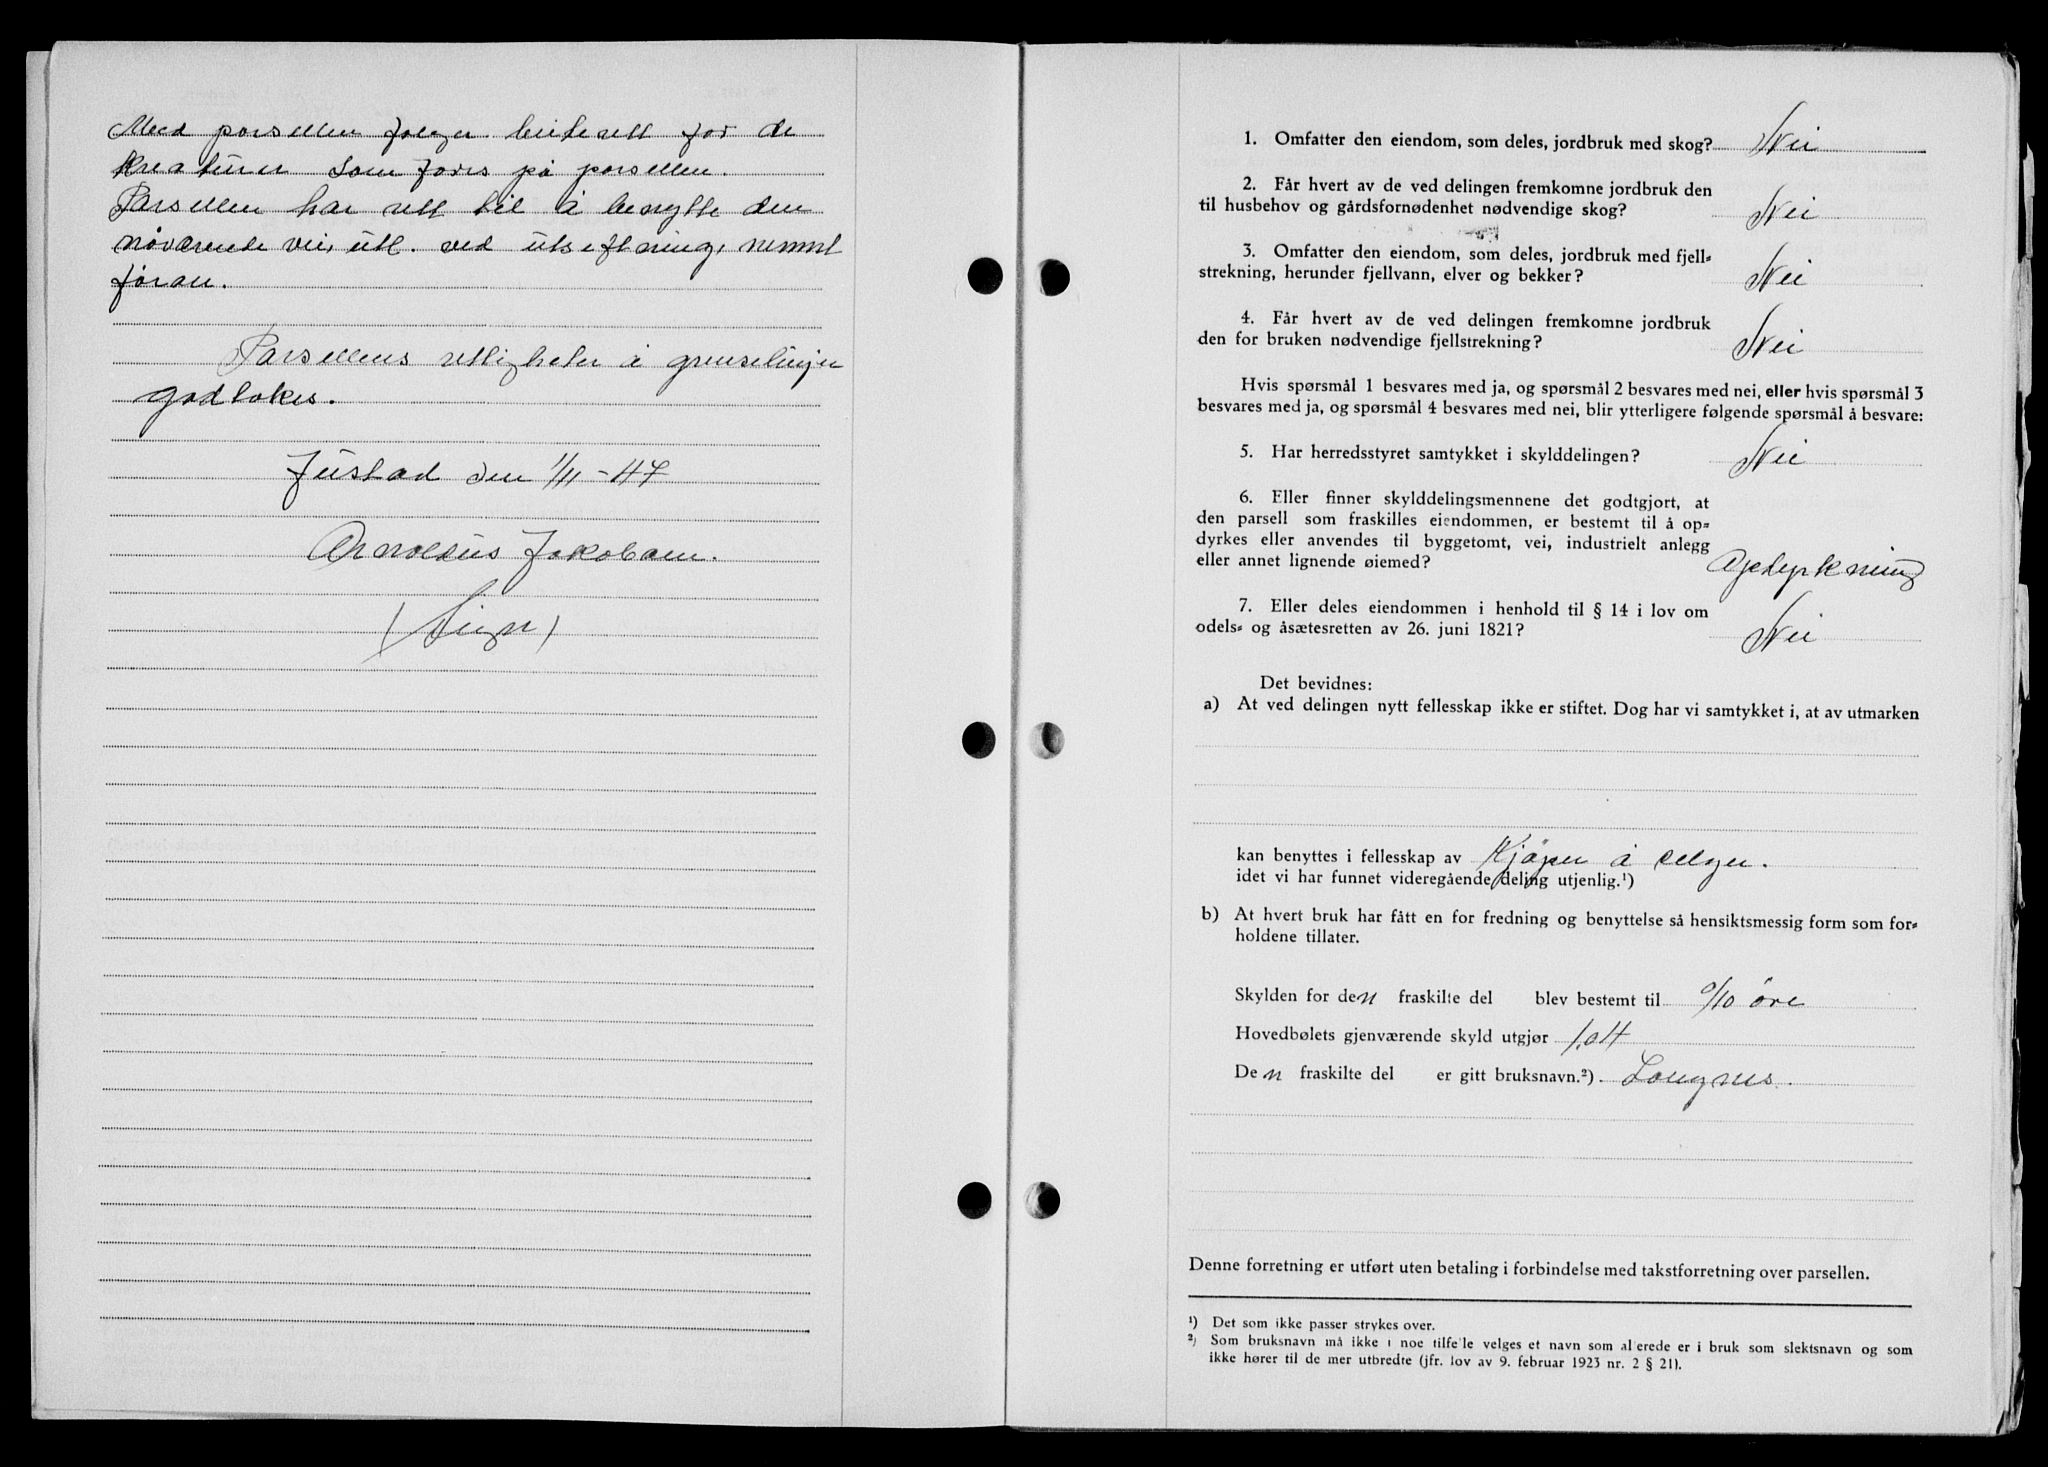 Med parsellen følger beiterett for de
kreaturer som fores på parsellen.
Parsellen har rett til å benytte den
nåværende vei, utl. ved utseftning, nemnt
foran.
Parsellens rettigheter å grenselinjer
godtokes.
Justad den 1/11-47
Arnoldus Jakobsen.
(Sign)
1. Omfatter den eiendom, som deles, jordbruk med skog? Nei
2. Får hvert av de ved delingen fremkomne jordbruk den
til husbehov og gårdsfornødenhet nødvendige skog? Nei
3. Omfatter den eiendom, som deles, jordbruk med fjell-
strekning, herunder fjellvann, elver og bekker? Nei
4. Får hvert av de ved delingen fremkomne jordbruk
den for bruken nødvendige fjellstrekning? Nei
Hvis spørsmål 1 besvares med ja, og spørsmål 2 besvares med nei, eller hvis spørsmål 3
besvares med ja, og spørsmål 4 besvares med nei, blir ytterligere følgende spørsmål å besvare:
5. Har herredsstyret samtykket i skylddelingen? Nei
6. Eller finner skylddelingsmennene det godtgjort, at
den parsell som fraskilles eiendommen, er bestemt til å op-
dyrkes eller anvendes til byggetomt, vei, industrielt anlegg
eller annet lignende øiemed? Opdyrkning
7. Eller deles eiendommen i henhold til § 14 i lov om
odels- og åsætesretten av 26. juni 1821? Nei
Det bevidnes:
a) At ved delingen nytt fellesskap ikke er stiftet. Dog har vi samtykket i, at av utmarken
kan benyttes i fellesskap av Kjøper å selger.
idet vi har funnet videregående deling utjenlig.¹)
b) At hvert bruk har fått en for fredning og benyttelse så hensiktsmessig form som for-
holdene tillater.
Skylden for den fraskilte del blev bestemt til 0/10 öre
Hovedbølets gjenværende skyld utgjør 1.04
Den fraskilte del er gitt bruksnavn.²) Langnes.
Denne forretning er utført uten betaling i forbindelse med takstforretning over parsellen.
¹) Det som ikke passer strykes over.
²) Som bruksnavn må ikke i noe tilfelle velges et navn som allerede er i bruk som slektsnavn og som
ikke hører til de mer utbredte (jfr. lov av 9. februar 1923 nr. 2 § 21).